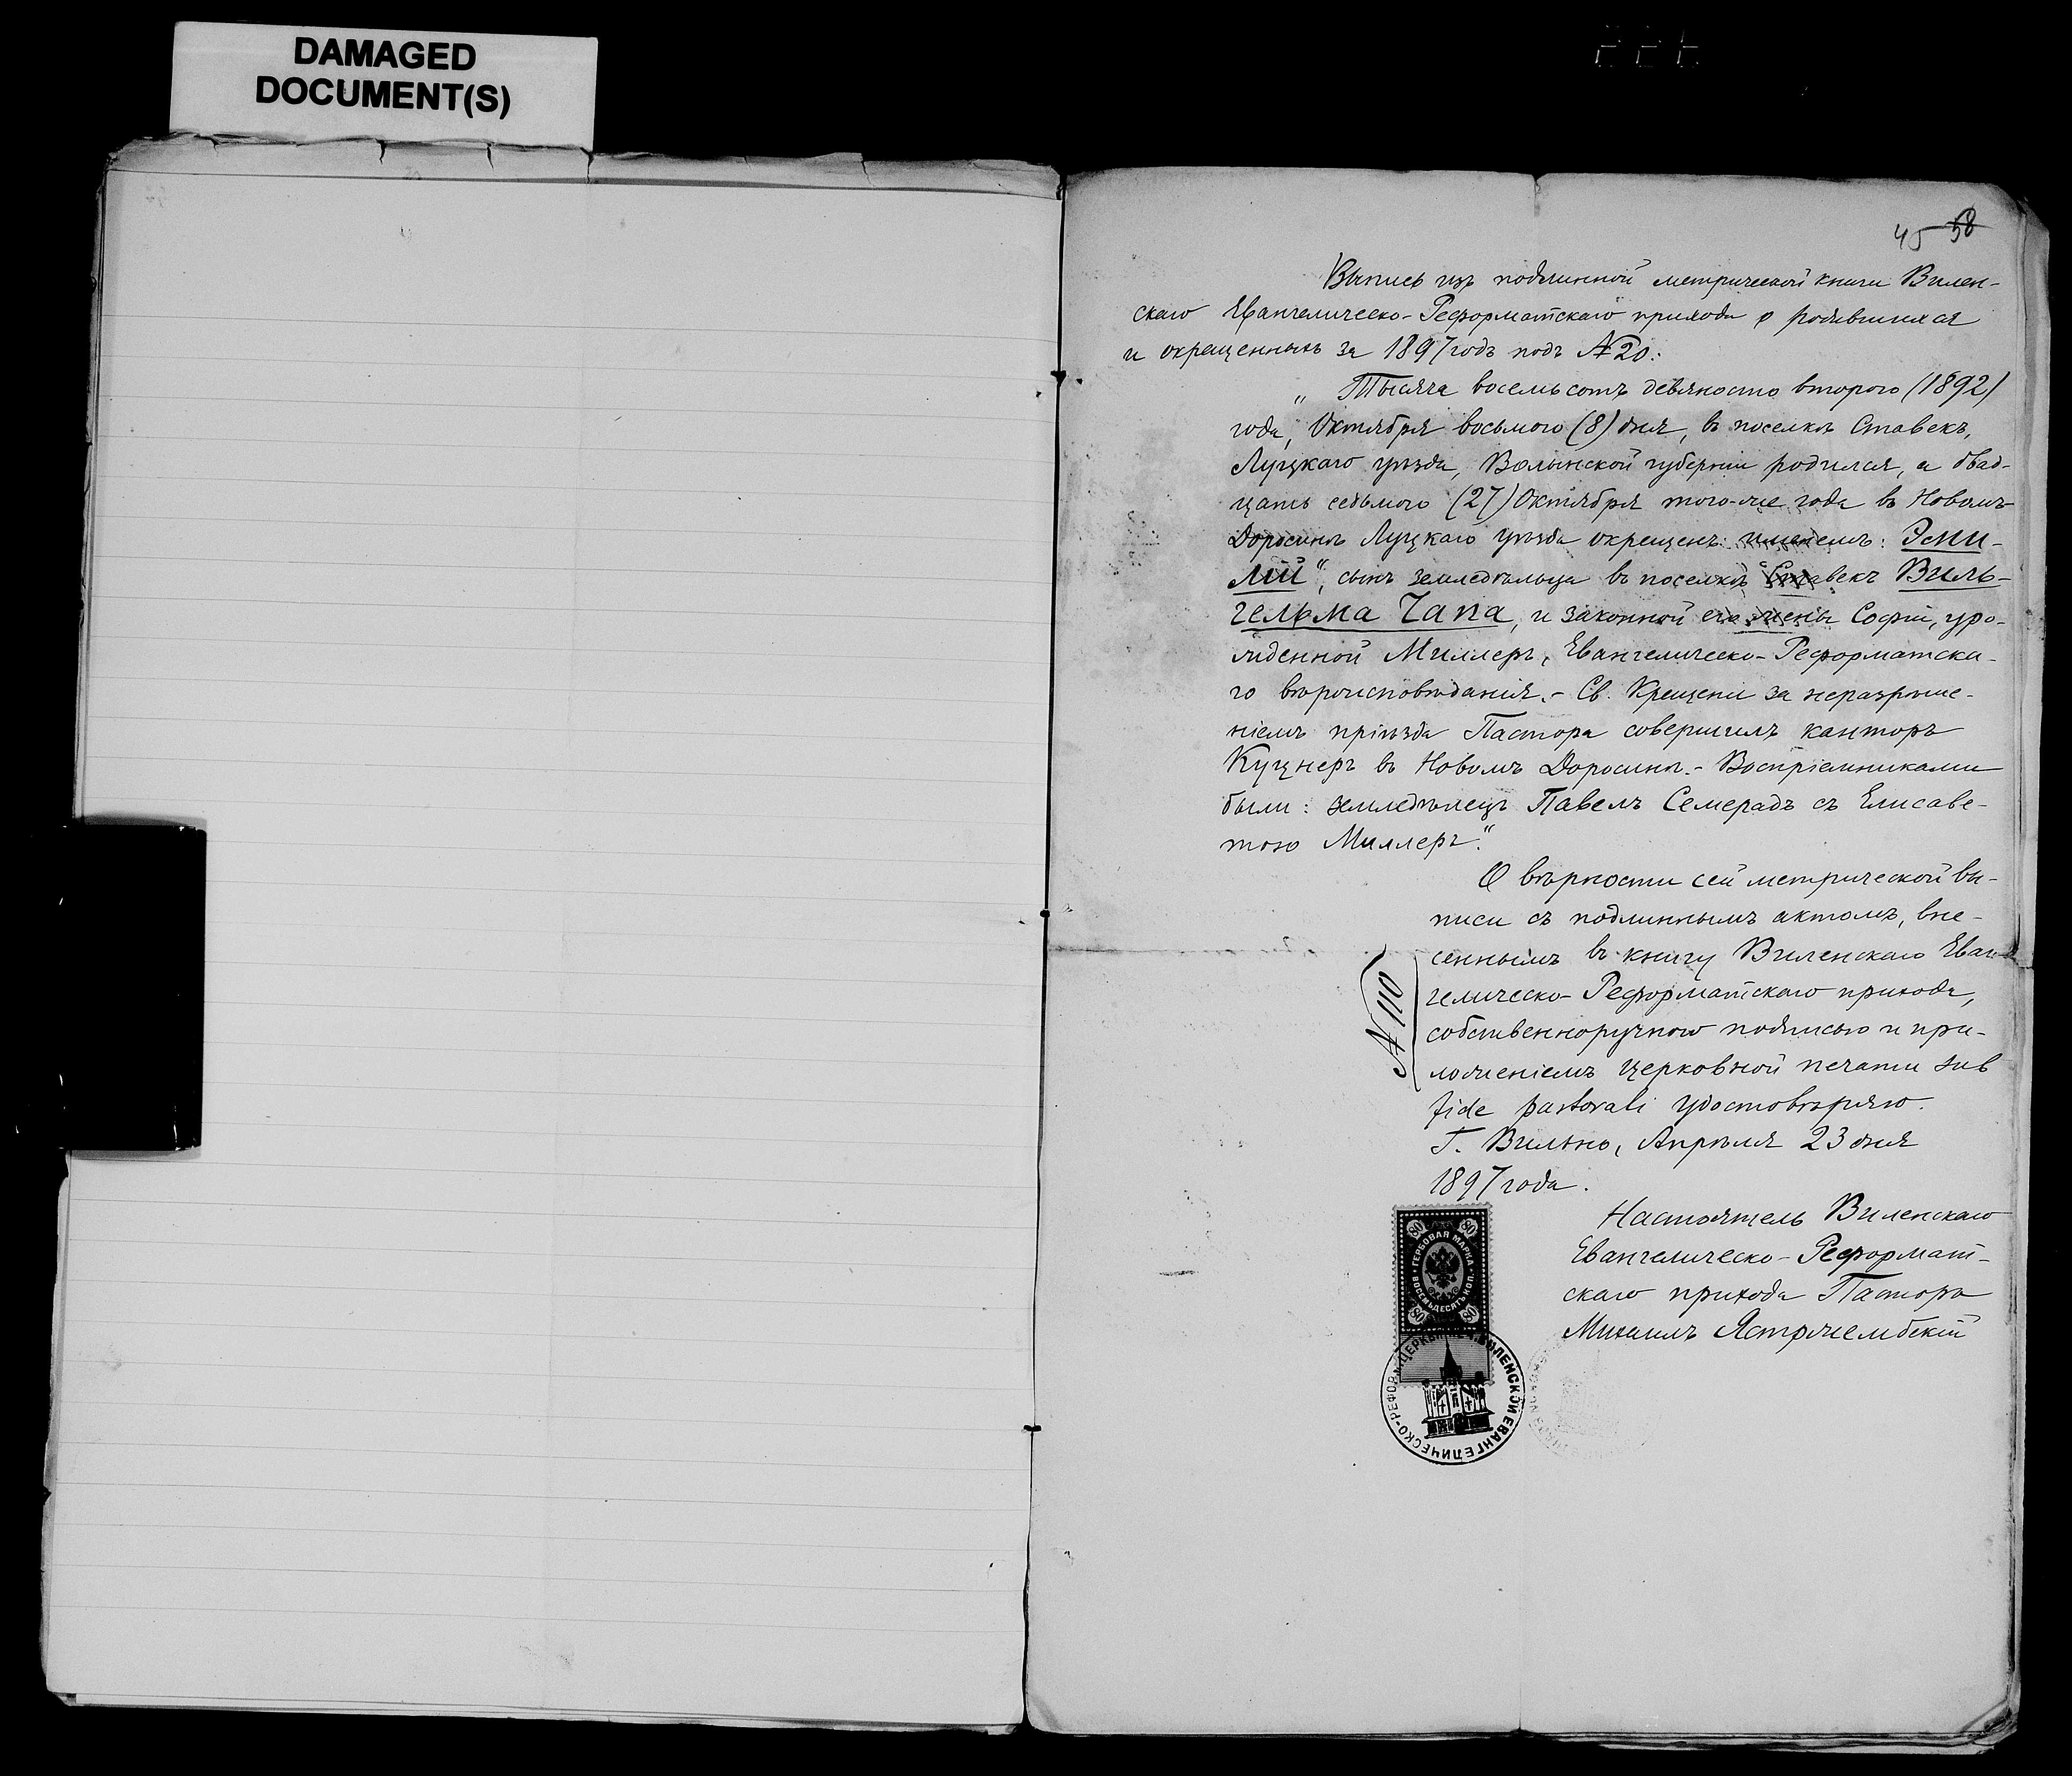 DAMAGED
DOCUMENT(S)
45 58
Выпись изъ подлинной метрической книги Вилен-
скаго Евангелическо-Реформатскаго прихода о родившихся
и окрещенныхъ за 1897 годъ подъ № 20:
„Тысяча восемьсотъ девяносто второго (1892)
года, Октября восьмого (8) дня, въ поселкѣ Ставекъ,
Луцкаго уѣзда, Волынской губерніи родился, а двад-
цать седьмого (27) Октября того-же года въ Новомъ
Доросинѣ Луцкаго уѣзда окрещенъ именемъ: Эми-
лій“, сынъ земледѣльца въ поселкѣ Ставекъ Виль-
гельма Чапа, и законной его жены Софіи, уро-
жденной Миллеръ, Евангелическо-Реформатска-
го вѣроисповѣданія. - Св. Крещеніе за неразрѣше-
ніемъ пріѣзда Пастора совершилъ канторъ
Куцнеръ въ Новомъ Доросинѣ. - Воспріемниками
были: земледѣлецъ Павелъ Семерадъ съ Елисаве-
тою Миллеръ.“
О вѣрности сей метрической вы-
писи съ подлиннымъ актомъ, вне-
сеннымъ въ книгу Виленскаго Еван-
гелическо-Реформатскаго прихода,
собственноручною подписью и при-
ложеніемъ церковной печати sub
fide pastorali удостовѣряю.
Г. Вильно, Апрѣля 23 дня
1897 года.
№ 110
Настоятель Виленскаго
Евангелическо-Реформат-
скаго прихода Пасторъ
Михаилъ Ястржембскій
80 80
ГЕРБОВАЯ МАРКА
ВОСЕМЬДЕСЯТЪ КОП.
80 80
ВИЛЕНСКОЙ ЕВАНГЕЛИЧЕСКО-РЕФОРМ. ЦЕРКВИ